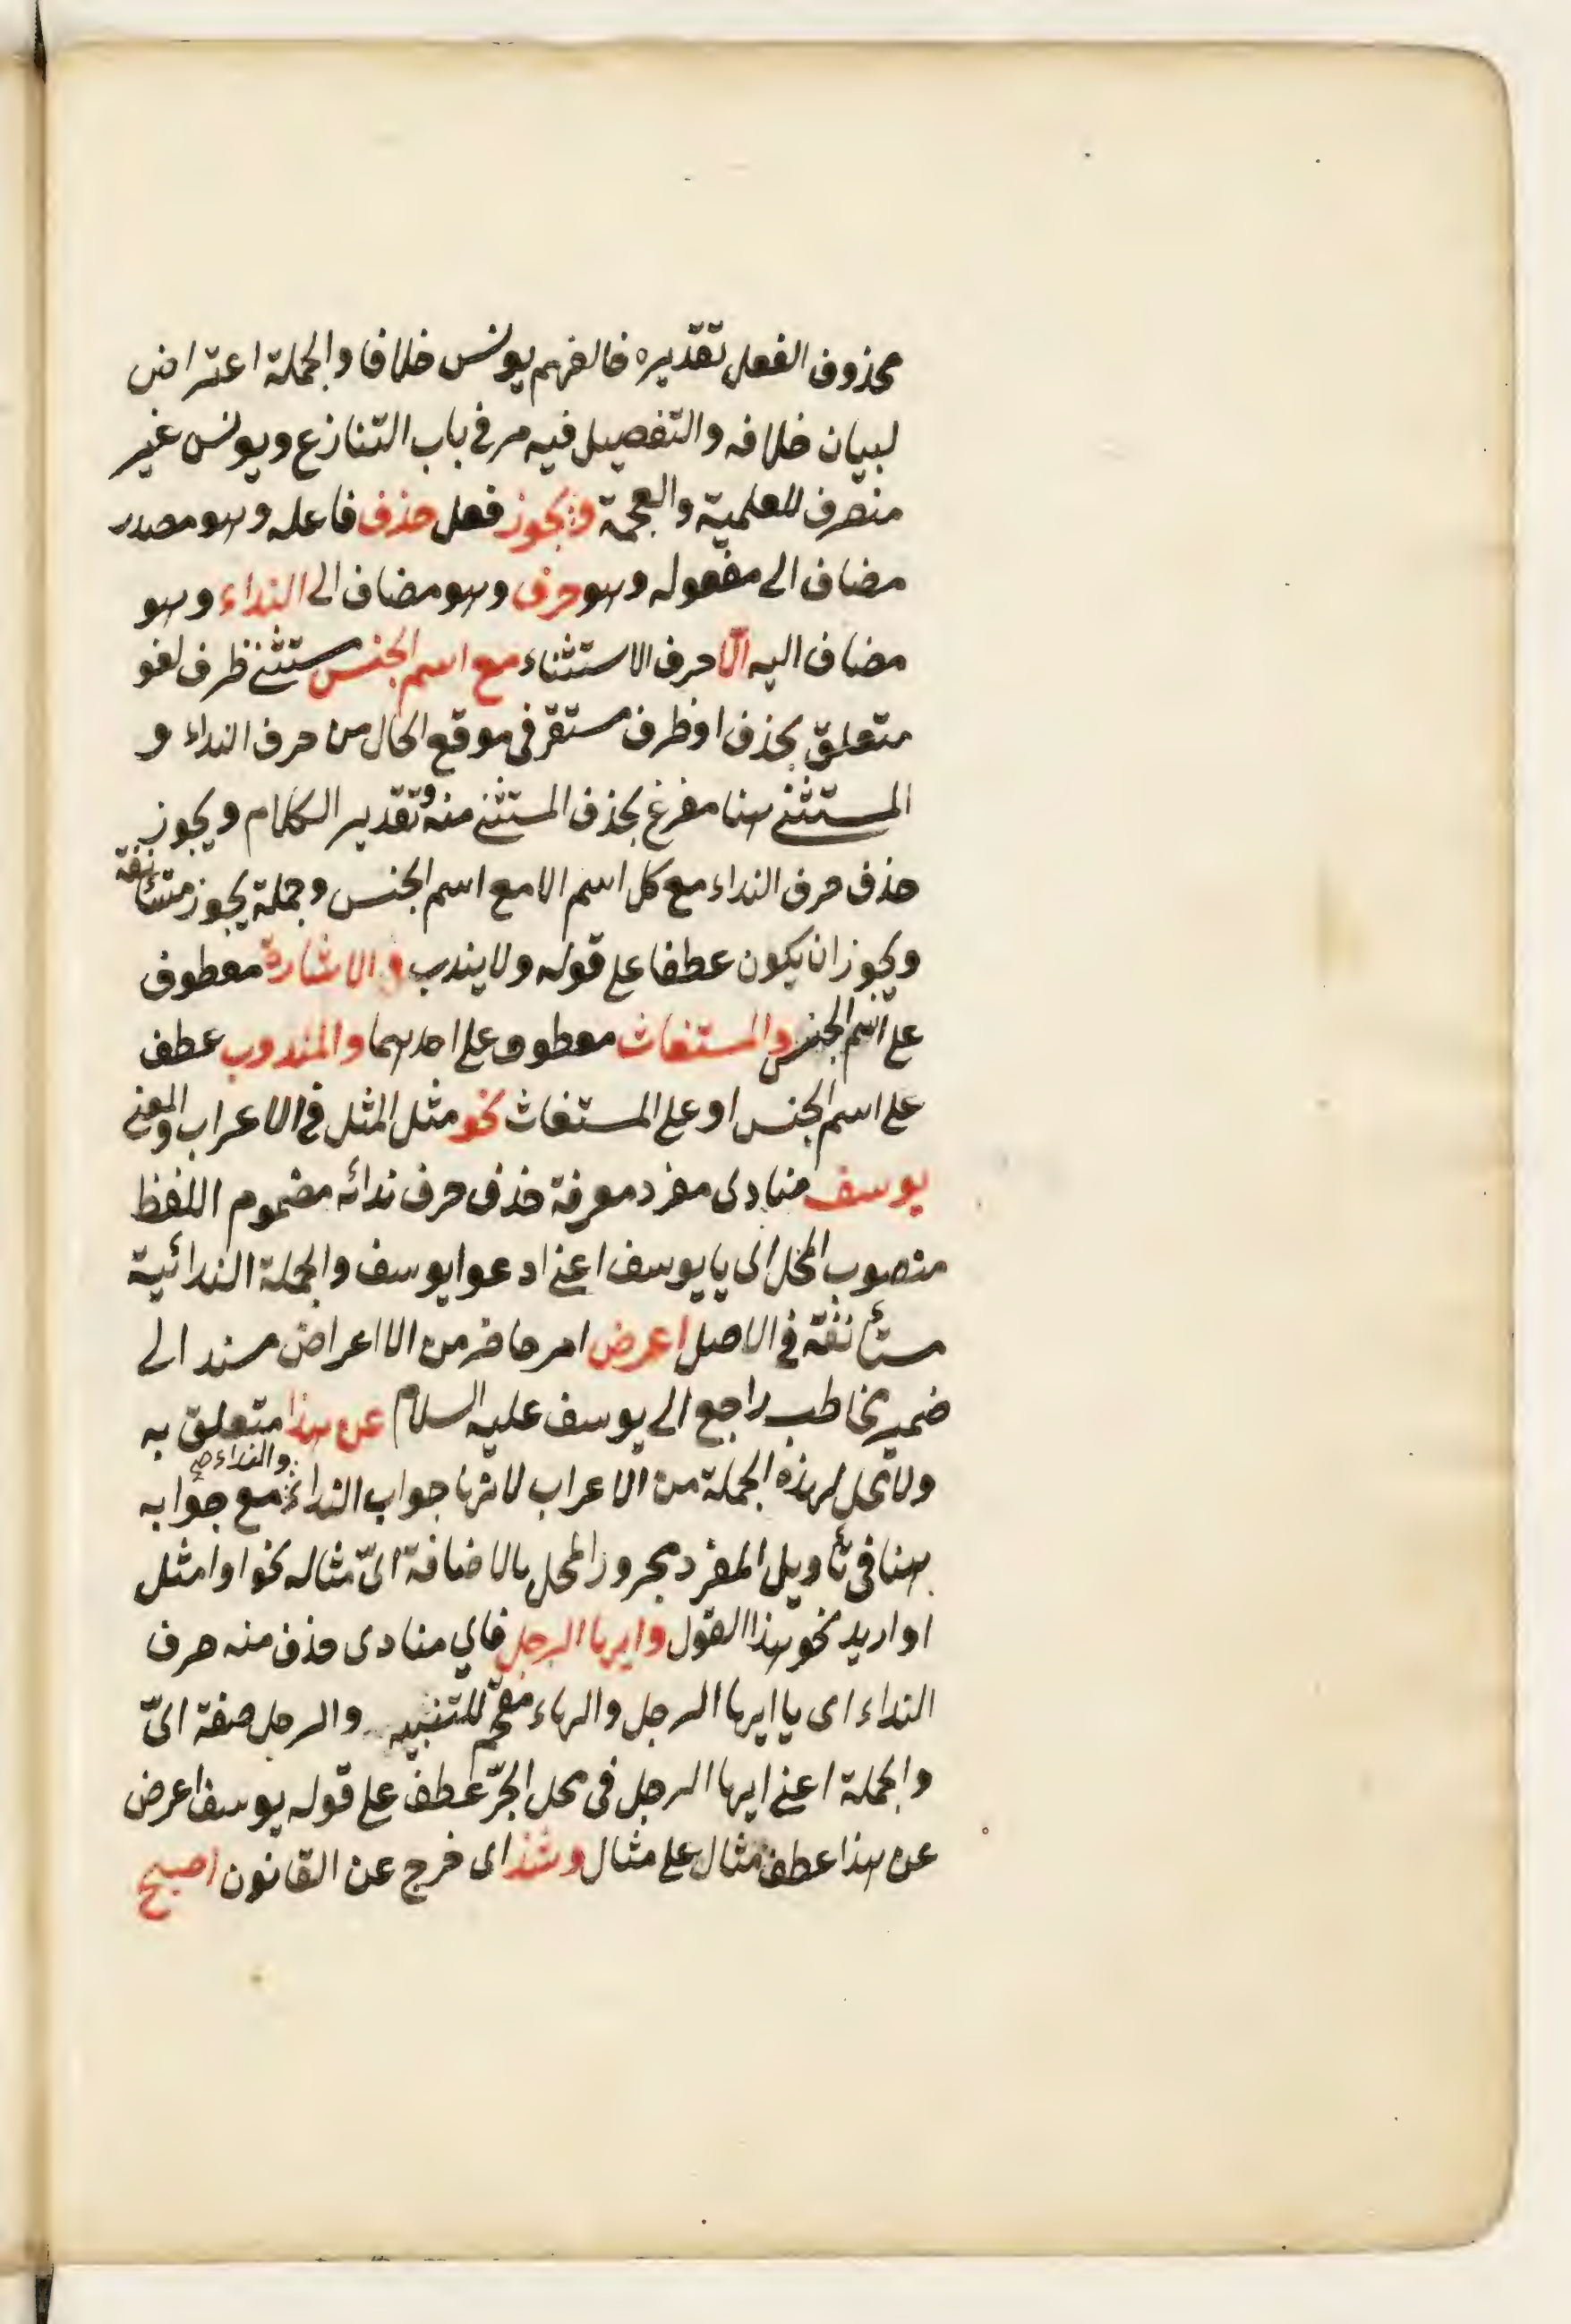 محذوف الفعل تقديره خالفهم يونس خلافا والجملة اعتراض
لبيان خلافه والتفصيل فيه مر في باب التنازع ويونس غير
منصرف للعلمية والعجمة ويجوز فعل حذف فاعله وهو مصدر
مضاف الى مفعوله وهو حرف وهو مضاف الى النداء وهو
مضاف اليه الّا حرف الاستثناء مع اسم الجنس مستثنى ظرف لغو
متعلق بحذف او ظرف مستقر في موقع الحال من حرف النداء و
المستثنى هنا مفرغ بحذف المستثنى منه وتقدير الكلام ويجوز
حذف حرف النداء مع كل اسم الا مع اسم الجنس وجملة يجوز مستأنفة
ويجوز ان يكون عطفا على قوله ولا يندب والاشارة معطوف
على اسم الجنس والمستغاث معطوف على احدهما والمندوب عطف
على اسم الجنس او على المستغاث نحو مثل المثل في الاعراب والمعنى
يوسف منادى مفرد معرفة حذف حرف ندائه مضموم اللفظ
منصوب المحل اى يا يوسف اعنى ادعوا يوسف والجملة الندائية
مستأنفة في الاصل اعرض امر حاضر من الاعراض مسند الى
ضمير مخاطب راجع الى يوسف عليه السلام عن هذا متعلق به
ولا محل لهذه الجملة من الاعراب لانها جواب النداء والنداء صح مع جوابه
هنا في تأويل المفرد مجرور المحل بالاضافة اىّ مثاله نحوا وامثل
او اريد نحو هذا القول وايها الرجل فاي منادى حذف منه حرف
النداء اى يا ايها الرجل والهاء مقحم للتنبيه والرجل صفة اىّ
والجملة اعنى ايها الرجل في محل الجرّ عطف على قوله يوسف اعرض
عن هذا عطف مثال على مثال وشذ اى خرج عن القانون اصبح